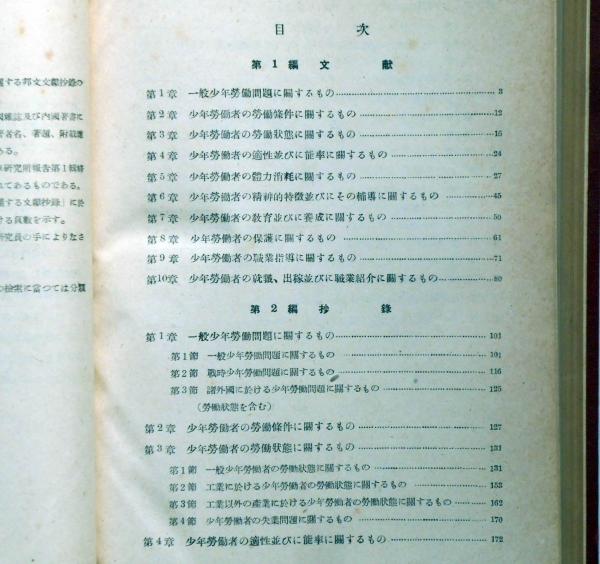 する邦文文獻抄錄の
雜誌及び內國著書に
著者名、著題、附載雜
ある。
研究所報告第1輯
れてあるものである。
する文獻抄錄」に於
ける頁數を示す。
研究員の手によりなさ
の檢索に當つては分類
目次
第1編 文獻
第1章 一般少年勞働問題に關するもの 3
第2章 少年勞働者の勞働條件に關するもの 12
第3章 少年勞働者の勞働狀態に關するもの 16
第4章 少年勞働者の適性並びに能率に關するもの 24
第5章 少年勞働者の體力消耗に關するもの 27
第6章 少年勞働者の精神的特徵並びにその輔導に關するもの 45
第7章 少年勞働者の敎育並びに養成に關するもの 50
第8章 少年勞働者の保護に關するもの 61
第9章 少年勞働者の職業指導に關するもの 71
第10章 少年勞働者の就職、出稼並びに職業紹介に關するもの 80
第2編 抄錄
第1章 一般少年勞働問題に關するもの 101
第1節 一般少年勞働問題に關するもの 101
第2節 戰時少年勞働問題に關するもの 116
第3節 諸外國に於ける少年勞働問題に關するもの 125
(勞働狀態を含む)
第2章 少年勞働者の勞働條件に關するもの 127
第3章 少年勞働者の勞働狀態に關するもの 131
第1節 一般少年勞働者の勞働狀態に關するもの 131
第2節 工業に於ける少年勞働者の勞働狀態に關するもの 153
第3節 工業以外の產業に於ける少年勞働者の勞働狀態に關するもの 162
第4節 少年勞働者の失業問題に關するもの 170
第4章 少年勞働者の適性並びに能率に關するもの 172